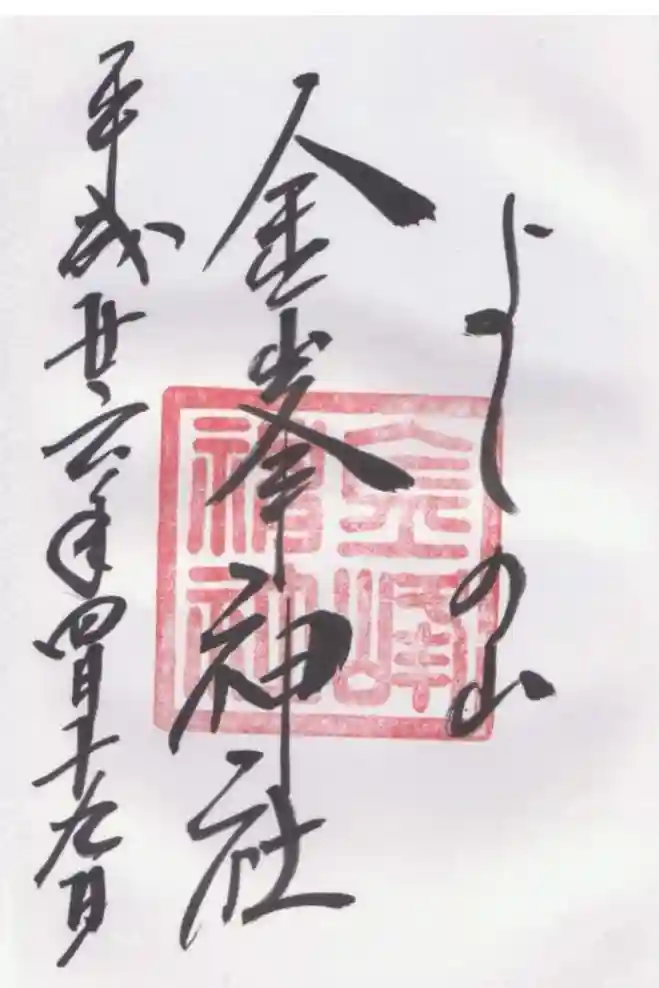 よしの山
金峯神社
平成廿六年四月十九日
金峰
神社